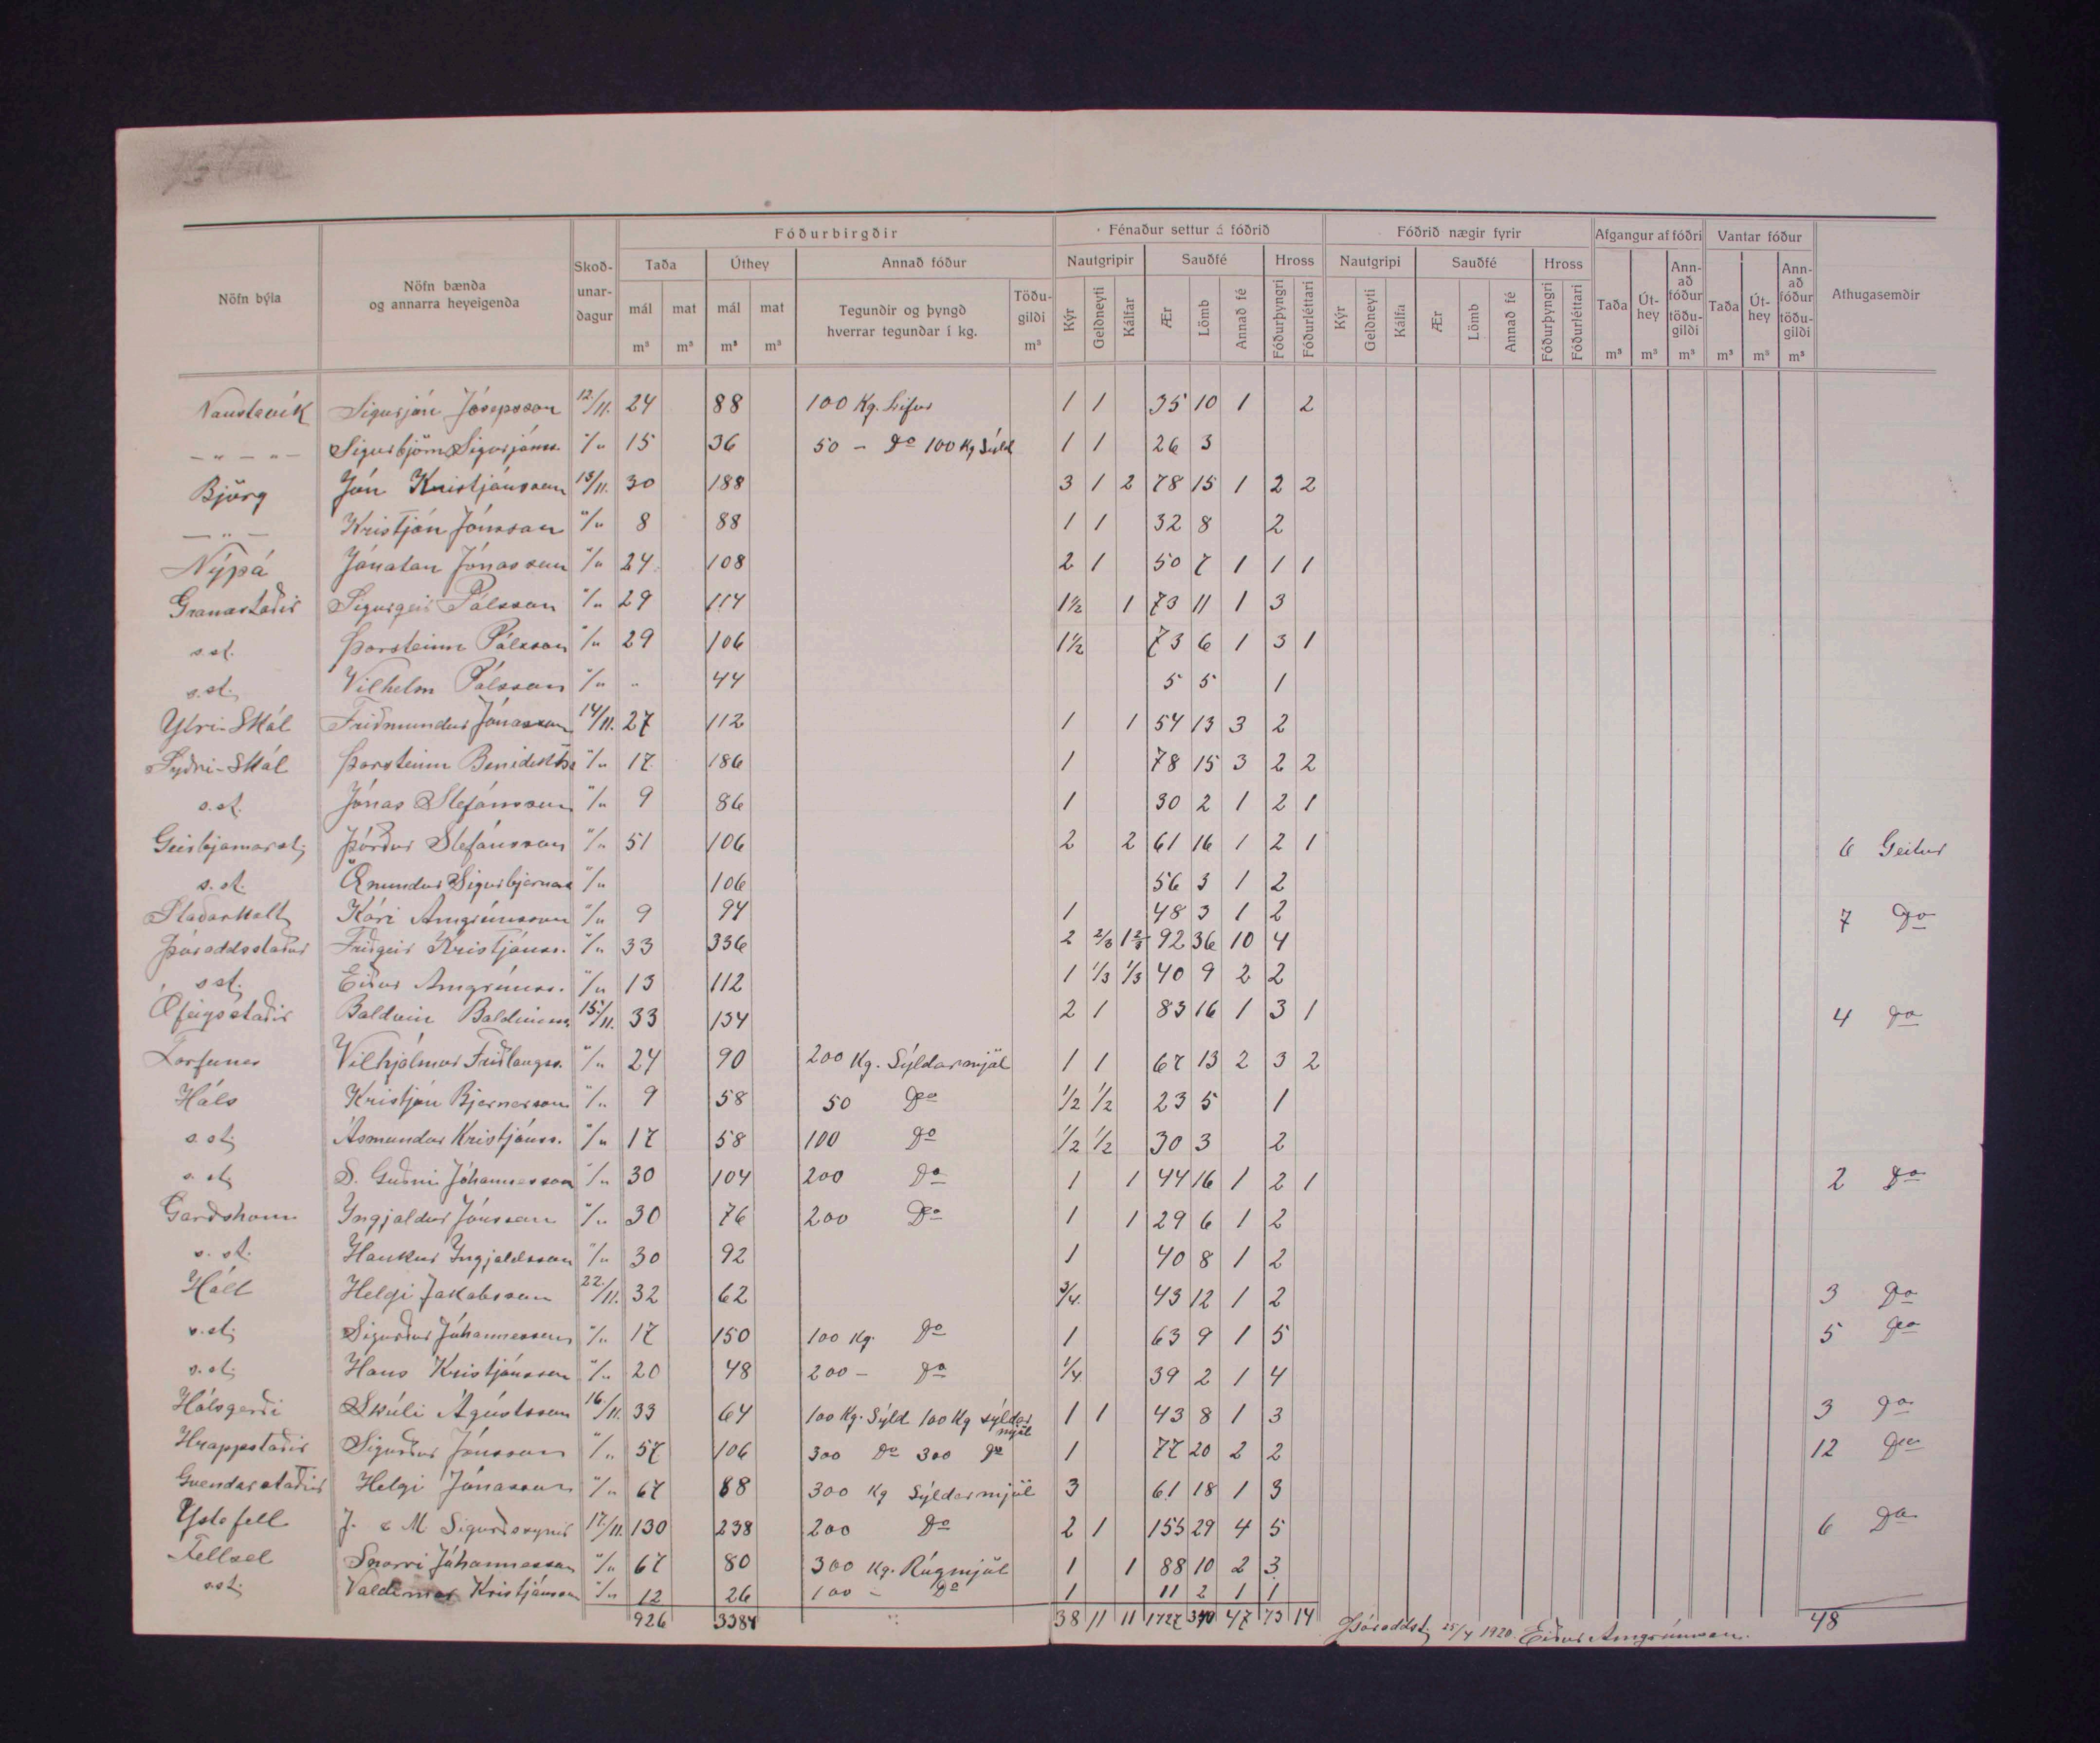 Fóðurbirgðir Fénaður settur á fóðrið Fóðrið nægir fyrir Afgangur af fóðri Vantar fóður
Nöfn býla Nöfn bænda og annarra heyeigenda Skoð-unar-dagur Taða Úthey Annað fóður Nautgripir Sauðfé Hross Nautgripi Sauðfé Hross Taða Út-hey Ann-að fóður töðu-gildi Taða Út-hey Ann-að fóður töðu-gildi Athugasemdir
mál mat mál mat Tegundir og þyngd hverrar tegundar í kg. Töðu-gildi Kýr Geldneyti Kálfar Ær Lömb Annað fé Fóðurþyngri Fóðurléttari Kýr Geldneyti Kálfa Ær Lömb Annað fé Fóðurþyngri Fóðurléttari
m³ m³ m³ m³ m³ m³ m³ m³ m³ m³ m³
Naustavík Sigurjón Jósepsson 12./11. 24 88 100 Kg. Lifur 1 1 35 10 1 2
— " — " — Sigurbjörn Sigurjónss. "/" 15 36 50 — Do 100 Kg Síld 1 1 26 3
Björg Jón Kristjánsson 13/11. 30 188 3 1 2 78 15 1 2 2
— " — Kristján Jónsson "/" 8 88 1 1 32 8 2
Nýpá Jónatan Jónasson "/" 24 108 2 1 50 7 1 1 1
Granastaðir Sigurgeir Pálsson "/" 29 114 1½ 1 73 11 1 3
s.st. Þorsteinn Pálsson "/" 29 106 1½ 73 6 1 3 1
s.st. Vilhelm Pálsson "/" " 44 5 5 1
Ytri-Skál Friðmundur Jónasson 14/11. 27 112 1 1 54 13 3 2
Syðri-Skál Þorsteinn Benidiktss "/" 17 186 1 78 15 3 2 2
s.st. Jónas Stefánsson "/" 9 86 1 30 2 1 2 1
Geirbjarnarst. Þórður Stefánsson "/" 51 106 2 2 61 16 1 2 1 6 Geitur
s.st. Ámundur Sigurbjarnars "/" 106 56 3 1 2
Staðarholt Kári Arngrímsson "/" 9 94 1 48 3 1 2 7 Do
Þóroddsstaður Friðgeir Kristjánss. "/" 33 336 2 2/3 1 2/3 92 36 10 4
s st. Eiður Arngrímss. "/" 13 112 1 1/3 1/3 40 9 2 2
Ófeigsstaðir Baldvin Baldvinss. 15./11. 33 134 2 1 83 16 1 3 1 4 Do
Torfunes Vilhjálmur Friðlaugss. "/" 24 90 200 Kg. Sýldarmjöl 1 1 67 13 2 3 2
Háls Kristján Bjernerson "/" 9 58 50 Do 1/2 1/2 23 5 1
s.st. Ásmundur Kristjánss. "/" 17 58 100 Do 1/2 1/2 30 3 2
s.st. S. Guðni Jóhannesson "/" 30 104 200 Do 1 1 44 16 1 2 1 2 Do
Garðshorn Yngjaldur Jónsson "/" 30 76 200 Do 1 1 29 6 1 2
s. st. Haukur Yngjaldsson "/" 30 92 1 40 8 1 2
Hóll Helgi Jakobsson 22./11. 32 62 3/4 43 12 1 2 3 Do
s.st. Sigurður Jóhannesson "/" 17 150 100 Kg. Do 1 63 9 1 5 5 Do
s.st. Hans Kristjánsson "/" 20 48 200 — Do 1/4 39 2 1 4
Hálsgerði Skúli Ágústsson 16./11. 33 64 100 Kg. Sýld 100 Kg sýldar mjöl 1 1 43 8 1 3 3 Do
Hrappstaðir Sigurður Jónsson "/" 57 106 300 Do 300 Do 1 77 20 2 2 12 Do
Guendarstaðir Helgi Jónasson "/" 67 88 300 Kg Sýldarmjöl 3 61 18 1 3
Ystafell J. & M Sigurðssynir 17./11. 130 238 200 Do 2 1 155 29 4 5 6 Do
Fellsel Snorri Jóhannesson "/" 67 80 300 Kg. Rúgmjöl 1 1 88 10 2 3
s.st. Valdimar Kristjánsson "/" 12 26 100 — Do 1 11 2 1 1
926 3384 38 11 11 1727 340 47 73 14 Þóroddst. 25/4 1920. Eiður Arngrímsson. 48